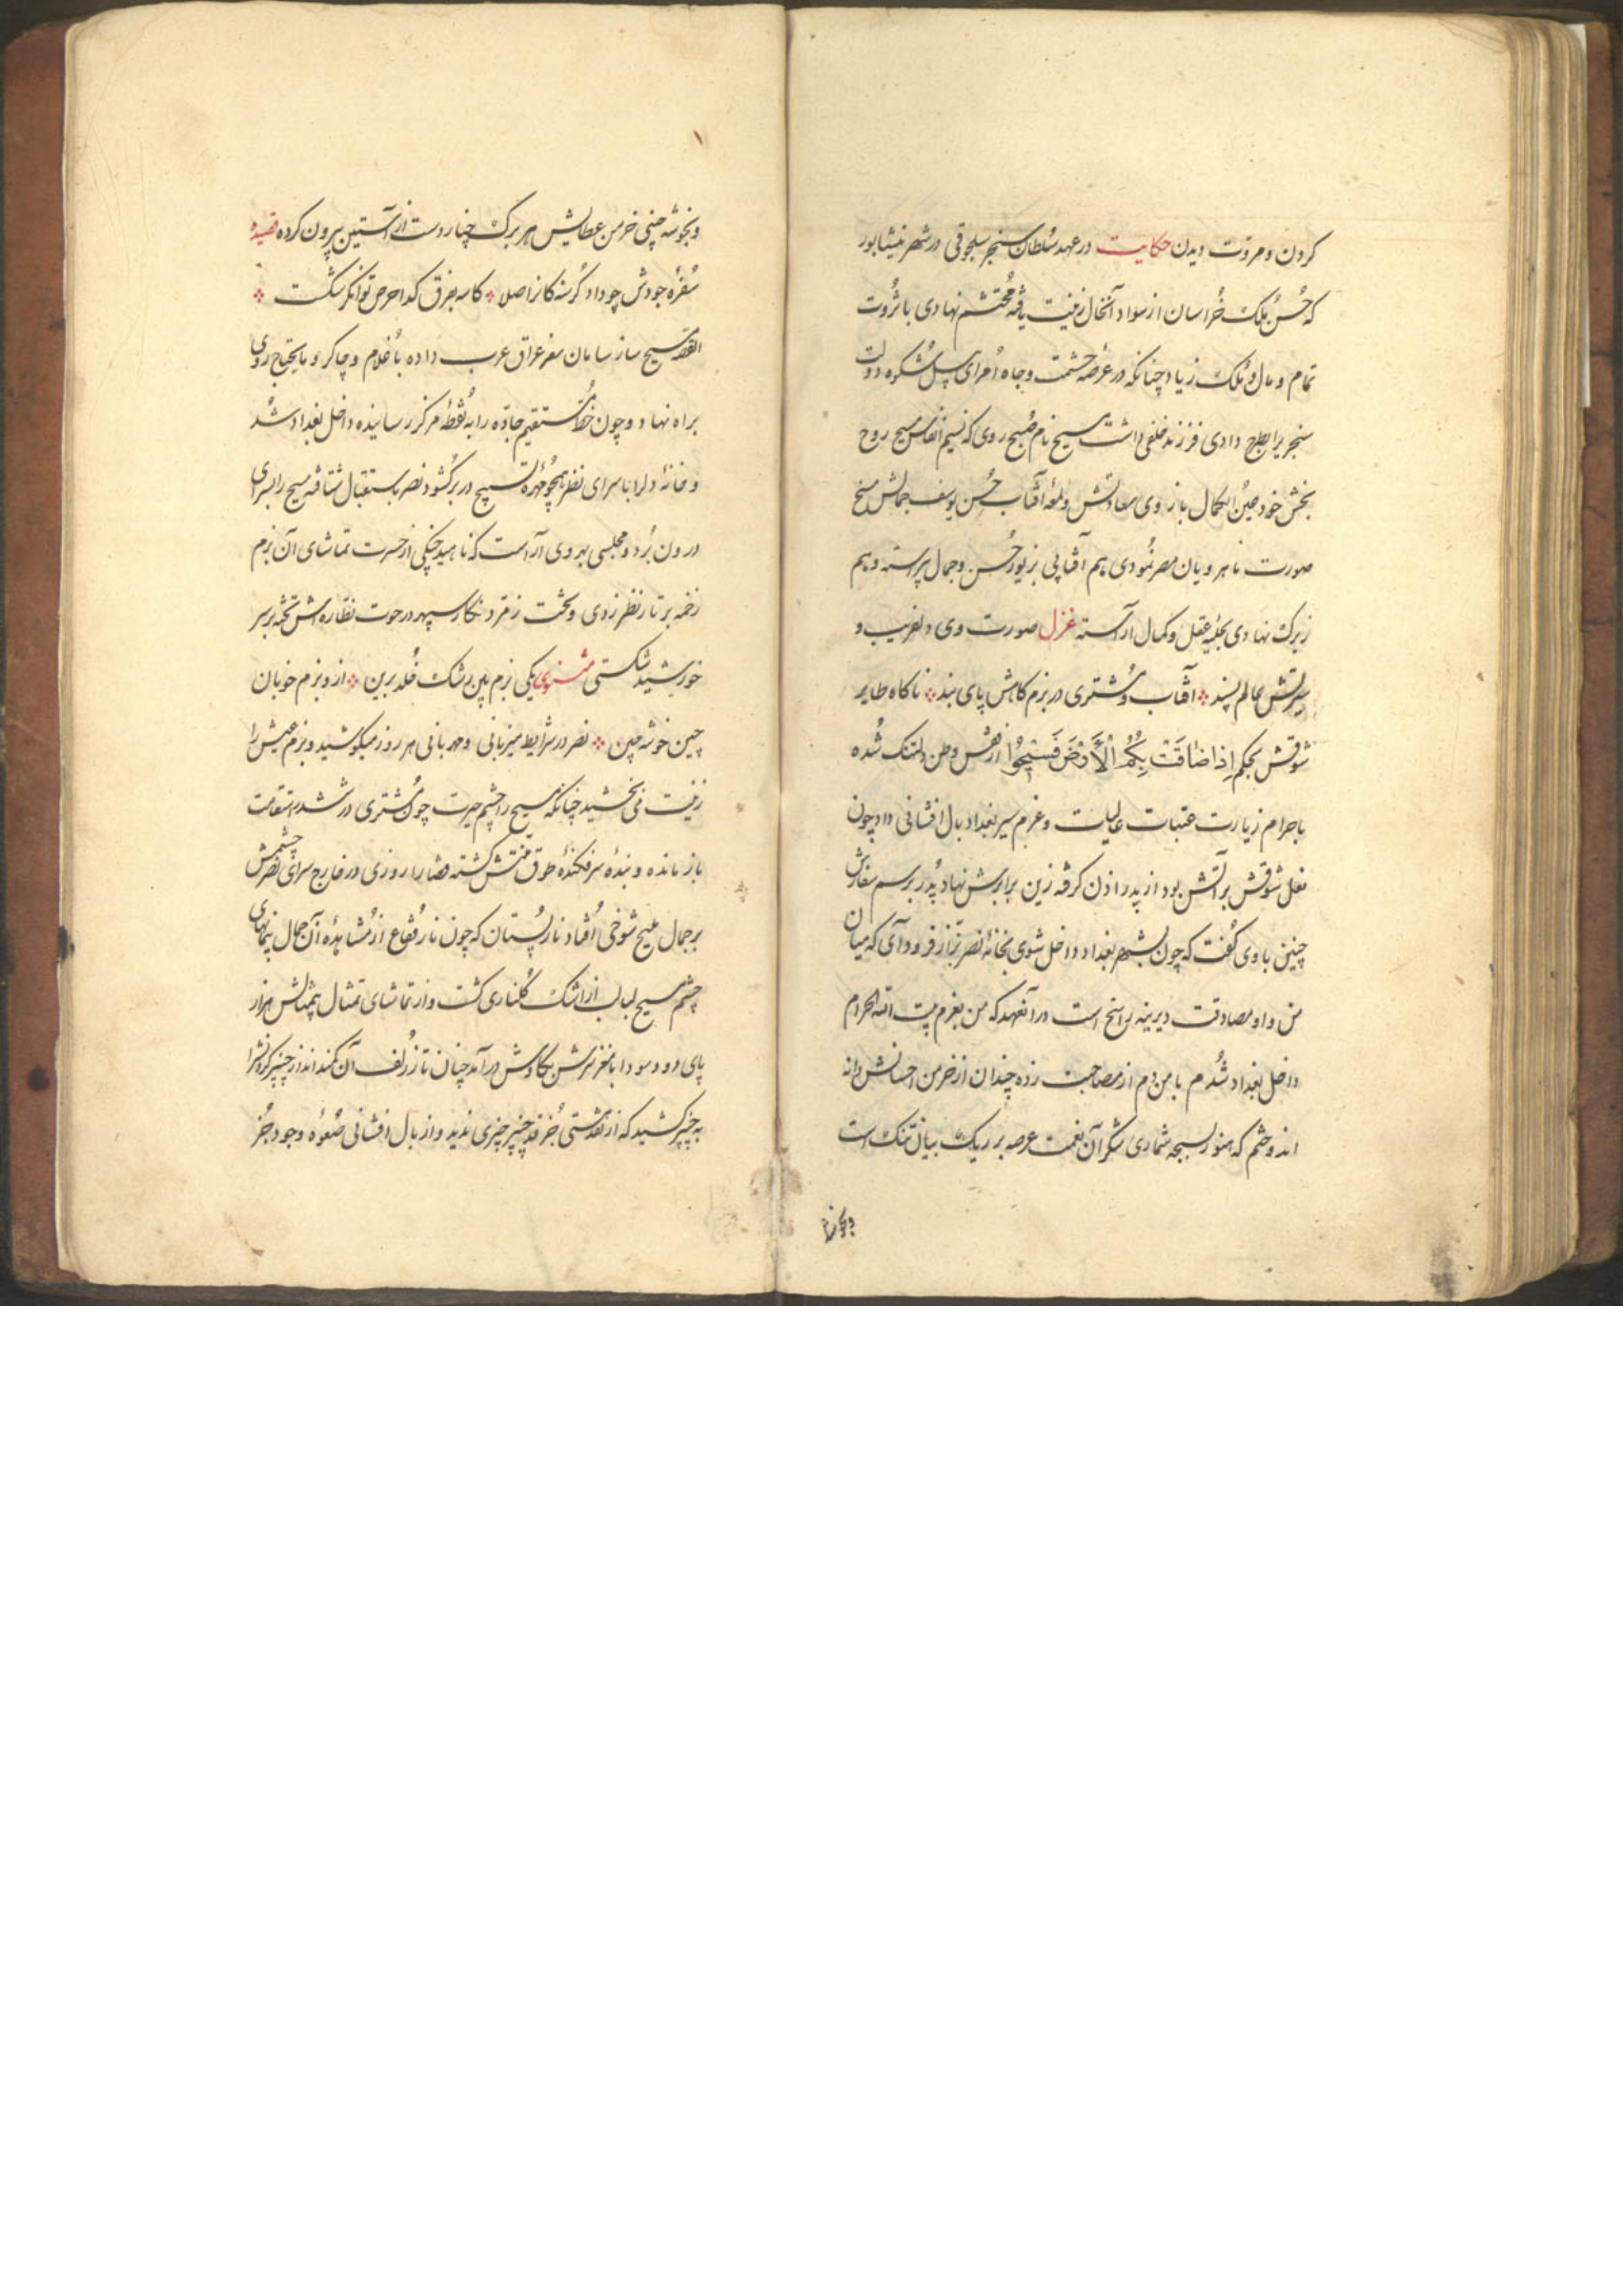 کردن و مروّت دیدن حکایت در عهد سُلطان سنجر سلجوقی در شهر نیشابور
که حُسنِ مُلک خُراسان از سواد آنخال زینت یافته مُحتشم نهادی با ثُروت
تمام و مال و مُلک زیاد چنانکه در عُرصه حشمت و جاه اُمرای شُکوه دولت
سنجر برابطرح دادی فرزند خلفی داشت مسیح نام صُبیح روی که نسیم انفاس مسیح روح
بخش خود عینُ الکمال باز روی سعادتش و لمعه آفتاب حُسن یوسف جمالش نسخ
صورت ماهرویان مصر نمُودی هم آفتابی بزیور حُسن و جمال پیراسته و هم
زیرک نهادی بحلیه عقل و کمال آراسته غزل صورت وی دلفریب و
سیرتش عالم پسند آفتاب و مُشتری در بزم کامش پای بند ناکاه طایر
شوقش بحکم اِذا ضاقَتْ بِکُمُ الْاَرْضَ فَسیحُوا از قفس وطن دلتنک شُده
باحرام زیارت عتبات عالیات و عزم سیر بغداد بال افشانی داد چون
نعل شوقش بر آتش بود از پدر اذن کرفته زین برابرش نهاد پدر برسم سفارش
چنین با وی کُفت که چون بشهر بغداد داخل شوی بخانهٔ نصر بزّاز فرود آی که میان
من و او مصادقت دیرینه راسخ است در آنعهد که من بعزم بیت الله الحرام
داخل بغداد شُدم با من دم از مصاحبت زده چندان از خرمن احسانش دانه
اندوختم که هنوز بسبحه شماری شکر آن نعمت عرصه بر ریک بیابان تنک است
و بخوشه چینی خرمن عطایش هر برک چنار دست از آستین بیرون کرده قصیده
سُفرهٔ جودش چو داد کُرسنه کانرا صلا کاسه بفرق کدا حرص توانکر شکست
القصّه مسیح ساز سامان سفر عراق عرب داده با غلام و چاکر و مایحتاج روی
براه نهاد و چون خطّ مُستقیم جادّه را به نُقطهٔ مرکز رسانیده داخل بغداد شُد
و خانهٔ دلرا با سرای نظر همچو مُهرهٔ تسبیح در بر کُشود نصر باستقبال شتافته مسیح را بسرای
درون بُرد و مجلسی بهر وی آراست که ناهید چنکی از حسرت تماشای آن بزم
زخمه بر تار نظر زدی و تخت زمرّد نکار سپهر در حوت نظّاره اش تخته بر سر
خورشید شکستی مثنوی یکی بزم رشک خُلد برین از و بزم خوبان
چین خوشه چین نصر در شرایط میزبانی و مهربانی هر روز میکوشید و بزم عیش را
زینت می بخشید چنانکه مسیح را چشم حیرت چون مُشتری در ششدر استقامت
باز مانده و بندهٔ سرفکندهٔ طوق منّتش کشته قضا را روزی در خارج سرای نصر چشمش
بر جمال ملیح شوخی اُفتاد نار پُستان که چون نار فُقاع از مُشاهدهٔ آن جمال پیمانهای
چشم مسیح لبالب از اشک کُلناری کشت و از تماشای تمثال بیمثالش هزار
پای دود سودا بمغز سرش بکاوش درآمد چنان تار زُلف آن کمند انداز چنبر
به چنبر کشید که از نقد هستی جُز قد چنبر چیزی ندید و از بال افشانی صعوهٔ وجود جُز